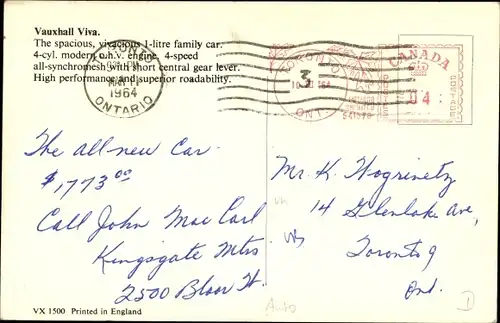 Vauxhall Viva.
The spacious, vivacious 1-litre family car.
4-cyl. modern o.h.v. engine. 4-speed
all-synchromesh with short central gear lever.
High performance and superior roadability.
TORONTO
1964
ONTARIO
TORONTO
3
ONT
CANADA
04
POSTAGE
The all-new Car
$1773.00
Call John Mac Carl
Kingsgate Mtrs
2500 Bloor St.
Mr. K. Hogrinetz
14 Glenlake Ave,
Toronto 9
Ont.
VX 1500 Printed in England
D